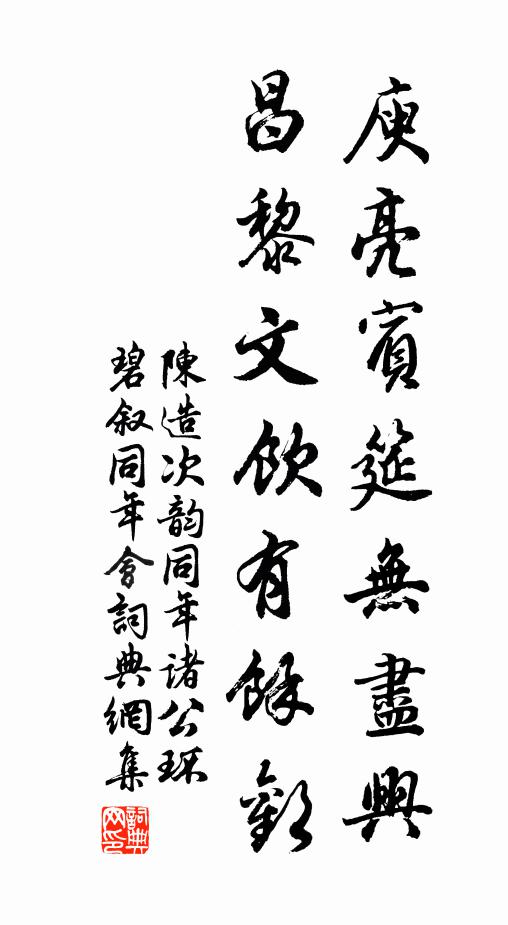 庾亮賓筵無盡興
昌黎文飲有餘歡
陳造次韵同年诸公环
碧叙同年會詞典網集
詞典網印